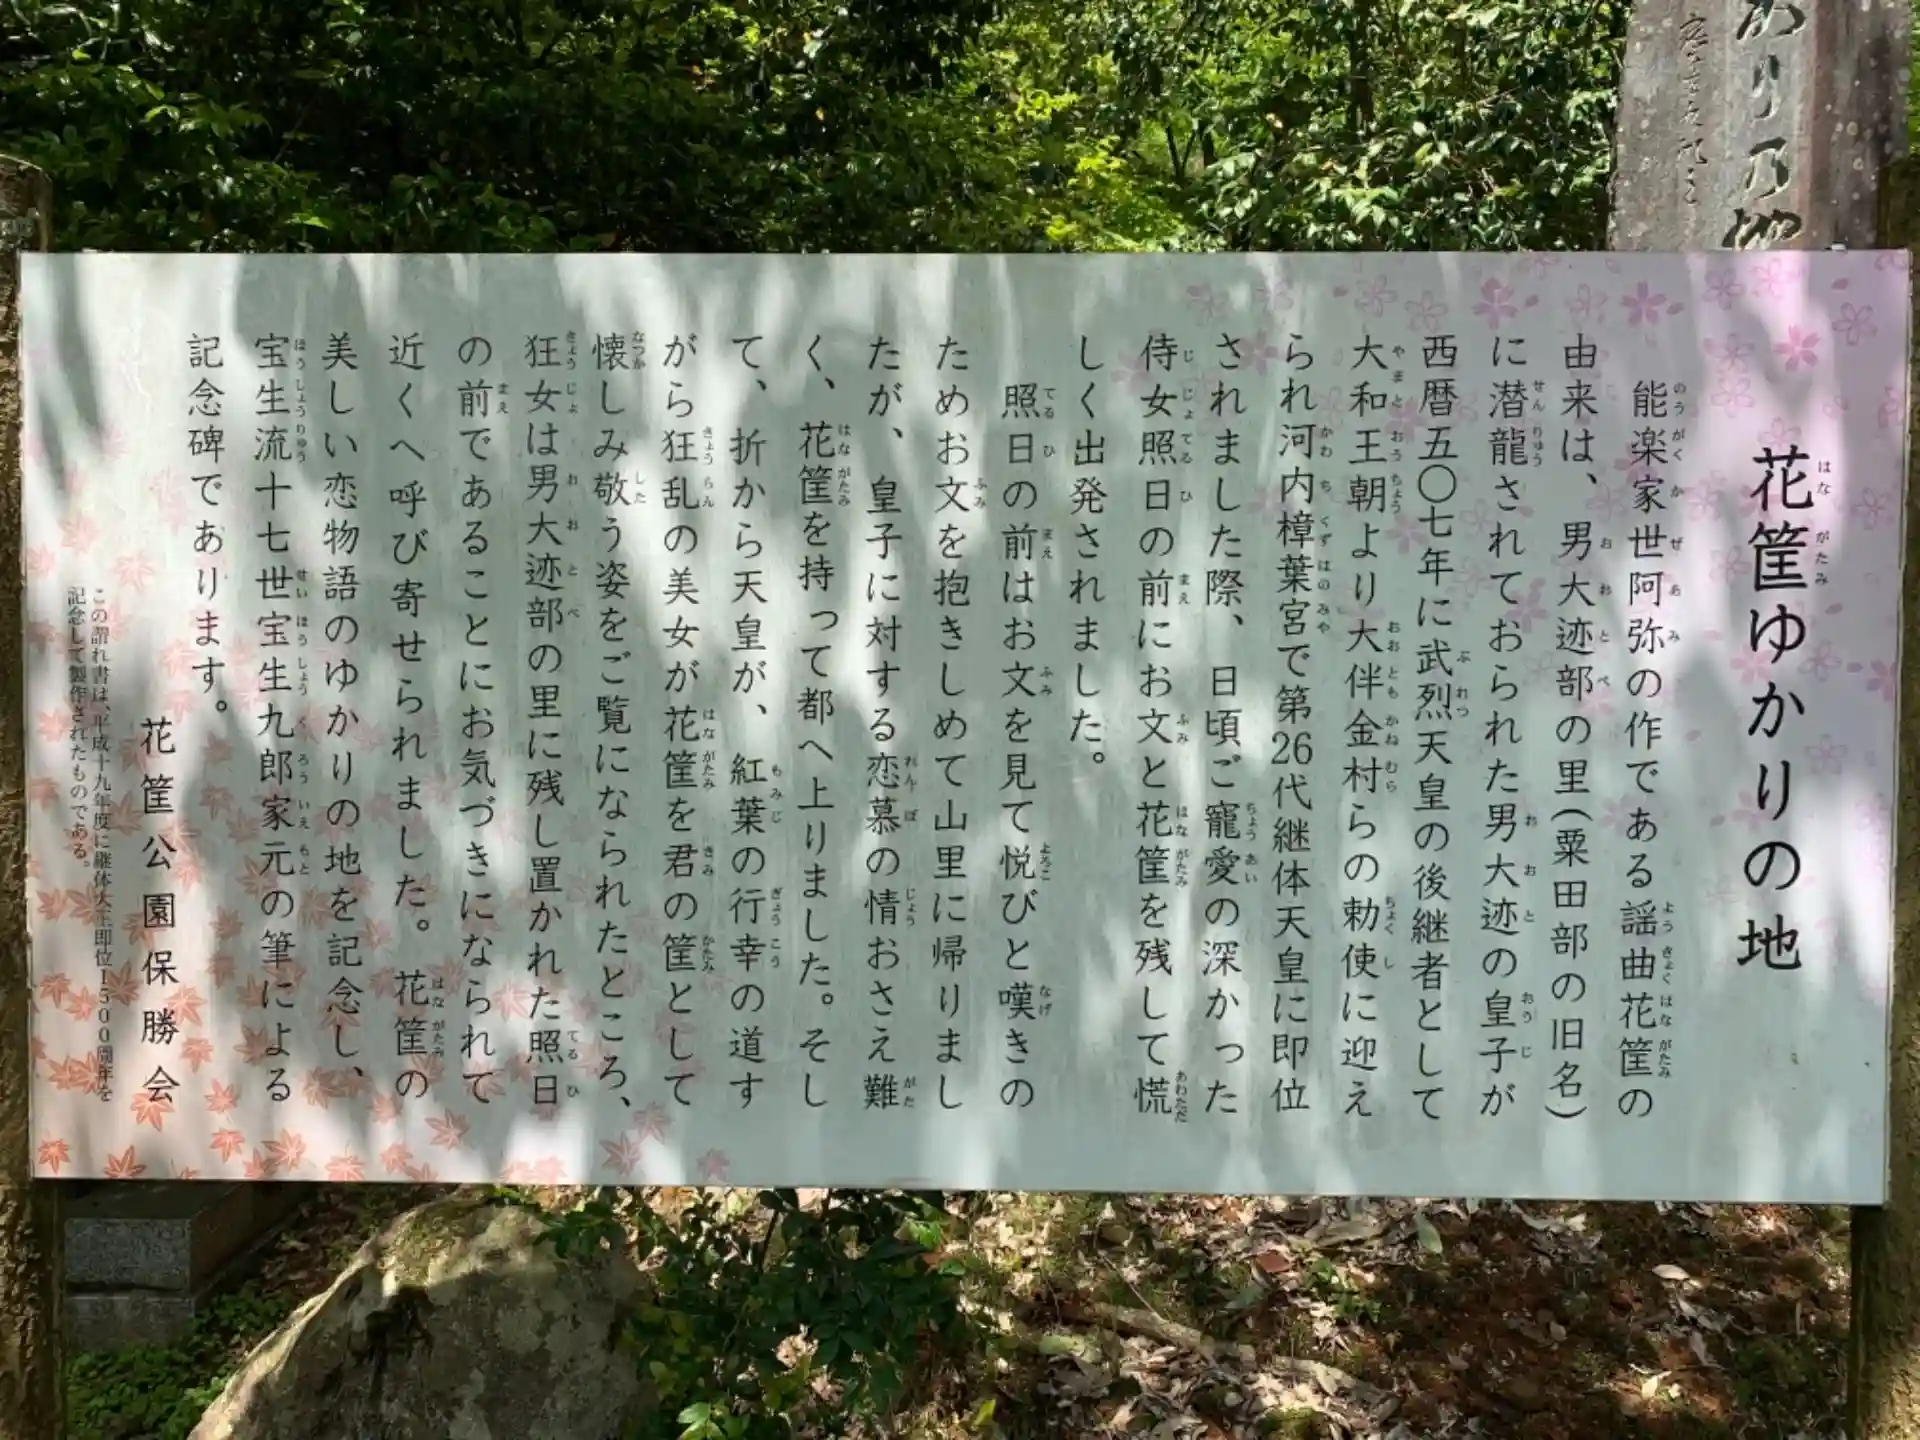 花筐ゆかりの地
能楽家世阿弥の作である謡曲花筐の
由来は、男大迹部の里(粟田部の旧名)
に潜龍されておられた男大迹の皇子が
西暦五〇七年に武烈天皇の後継者として
大和王朝より大伴金村らの勅使に迎え
られ河内樟葉宮で第26代継体天皇に即位
されました際、日頃ご寵愛の深かった
侍女照日の前にお文と花筐を残して慌
しく出発されました。
照日の前はお文を見て悦びと嘆きの
ためお文を抱きしめて山里に帰りまし
たが、皇子に対する恋慕の情おさえ難
く、花筐を持って都へ上りました。そし
て、折から天皇が、紅葉の行幸の道す
がら狂乱の美女が花筐を君の筐として
懐しみ敬う姿をご覧になられたところ、
狂女は男大迹部の里に残し置かれた照日
の前であることにお気づきになられて
近くへ呼び寄せられました。花筐の
美しい恋物語のゆかりの地を記念し、
宝生流十七世宝生九郎家元の筆による
記念碑であります。
花筐公園保勝会
この謂れ書は、平成十九年度に継体大王即位1500周年を
記念して製作されたものである。